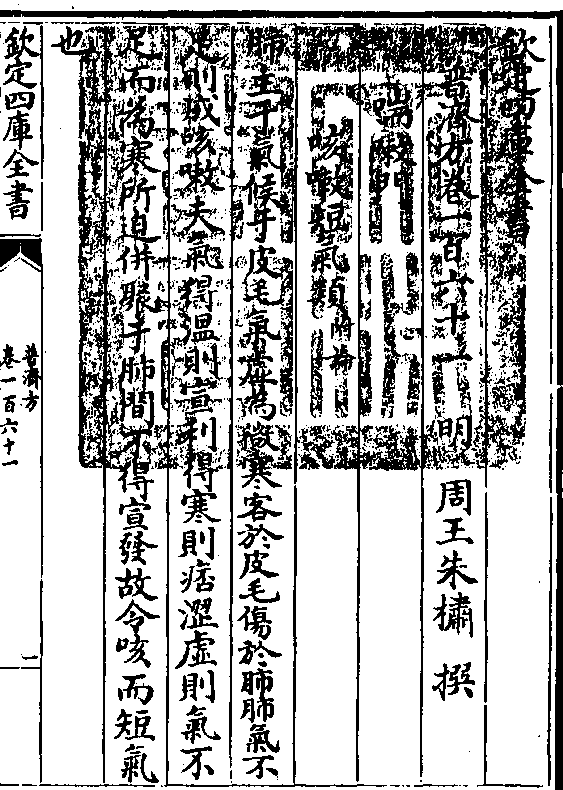 欽定四庫全書
普濟方卷一百六十一　明　周王朱橚　撰
喘嗽門
咳嗽短氣類附論
肺主于氣候于皮毛氣虛為微寒客於皮毛傷於肺肺氣不
足則成咳嗽夫氣得溫則宣利得寒則痞澀虛則氣不
足而為寒所迫併聚于肺間不得宣發故令咳而短氣
也
欽定四庫全書
普濟方
卷一百六十一
一